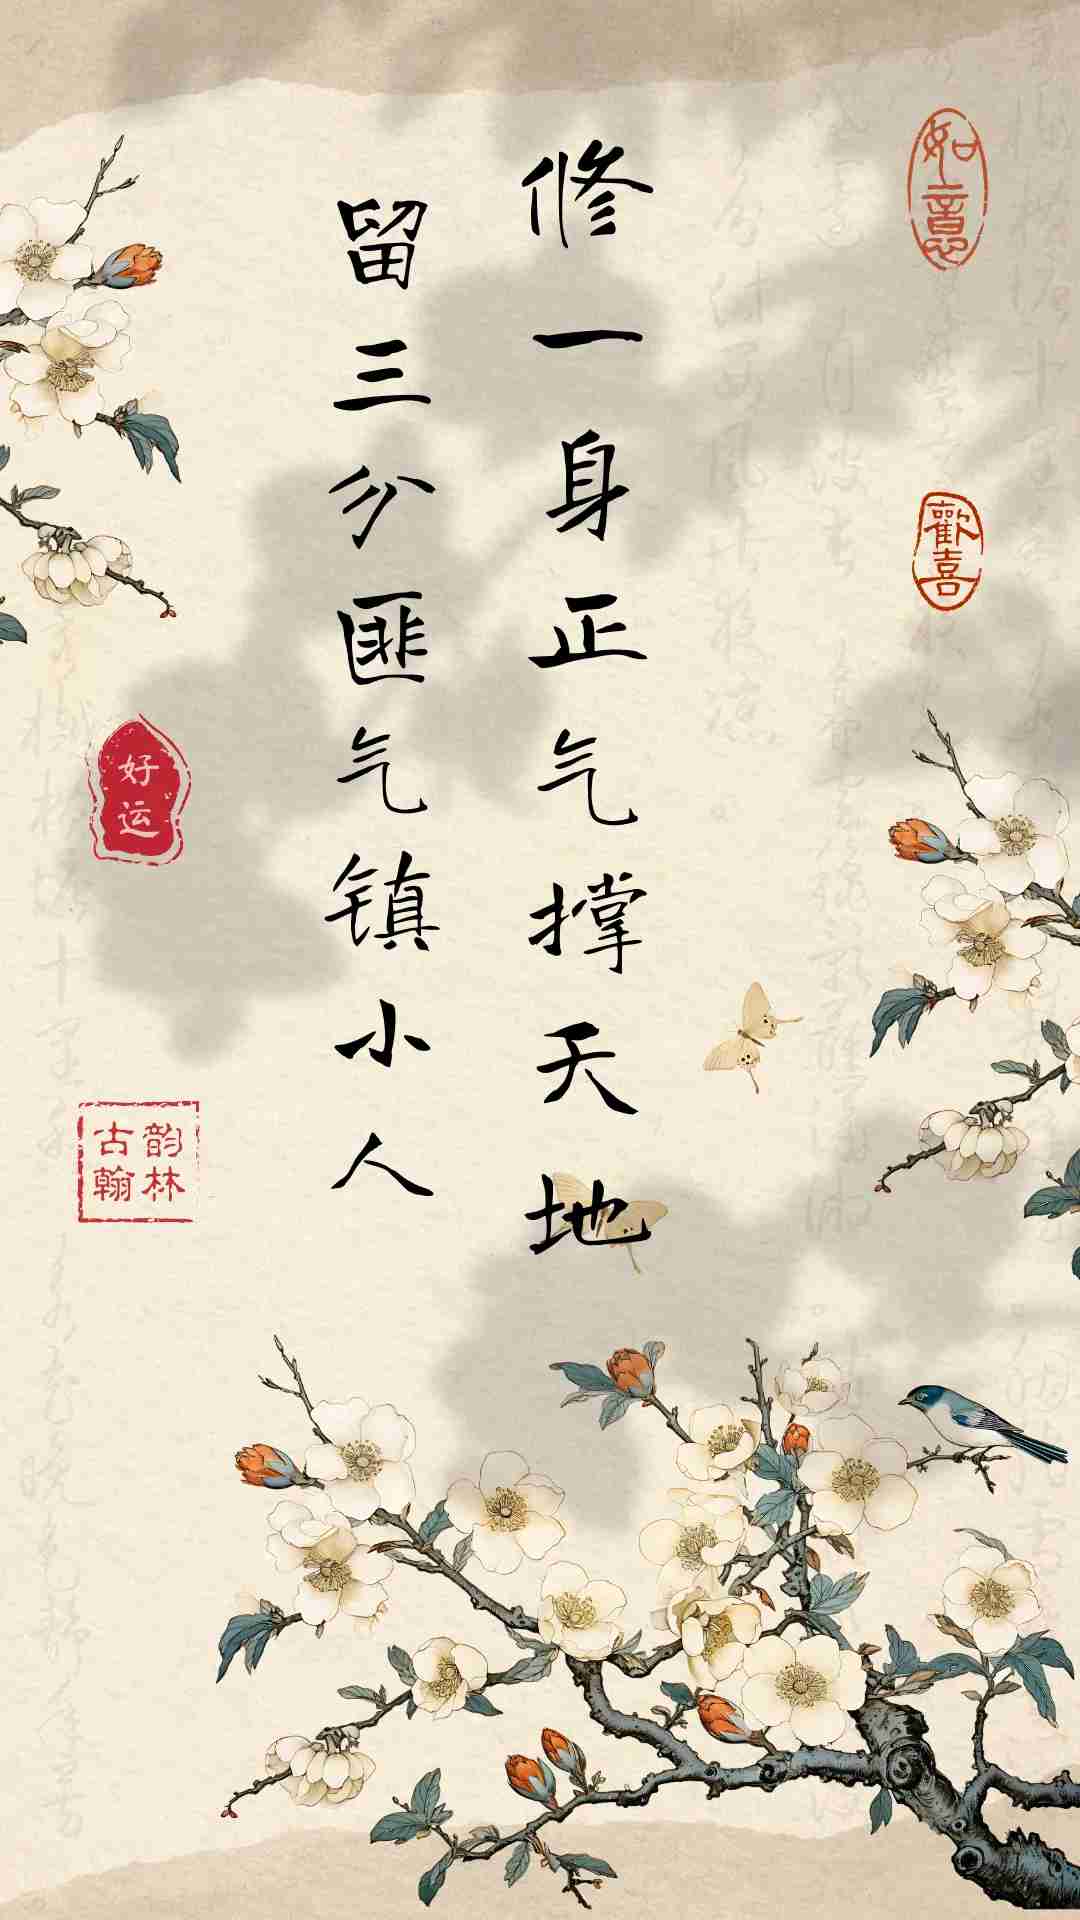 修一身正气撑天地
留三分匪气镇小人
如意
歡喜
好运
古韵
翰林